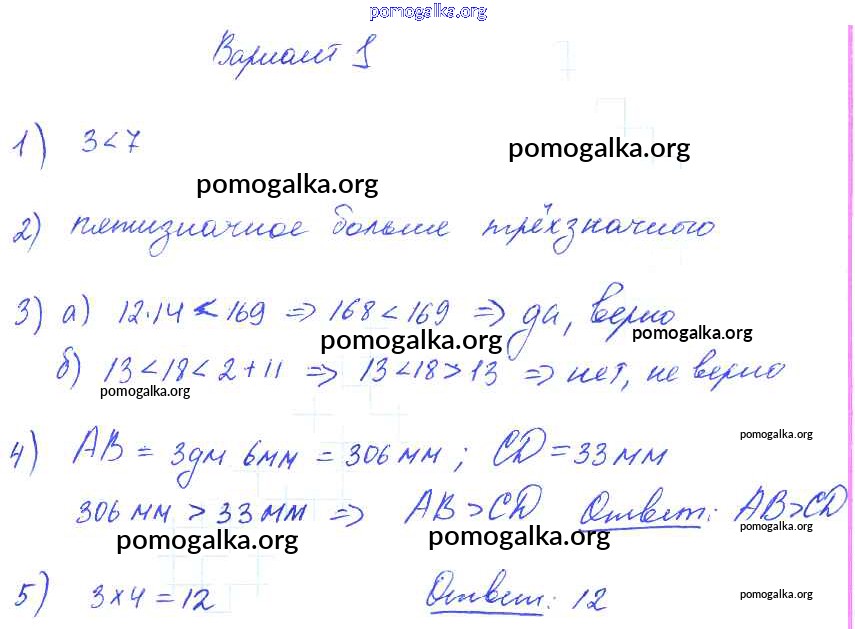 pomogalka.org
Вариант 1
1) 3 < 7
pomogalka.org
pomogalka.org
2) пятизначное больше трёхзначного
3) а) 12·14 < 169 => 168 < 169 => да, верно
pomogalka.org
pomogalka.org
б) 13 < 18 < 2 + 11 => 13 < 18 > 13 => нет, не верно
pomogalka.org
pomogalka.org
4) AB = 3дм 6мм = 306 мм ; CD = 33 мм
306 мм > 33 мм => AB > CD Ответ: AB > CD
pomogalka.org
pomogalka.org
pomogalka.org
5) 3 × 4 = 12 Ответ: 12
pomogalka.org